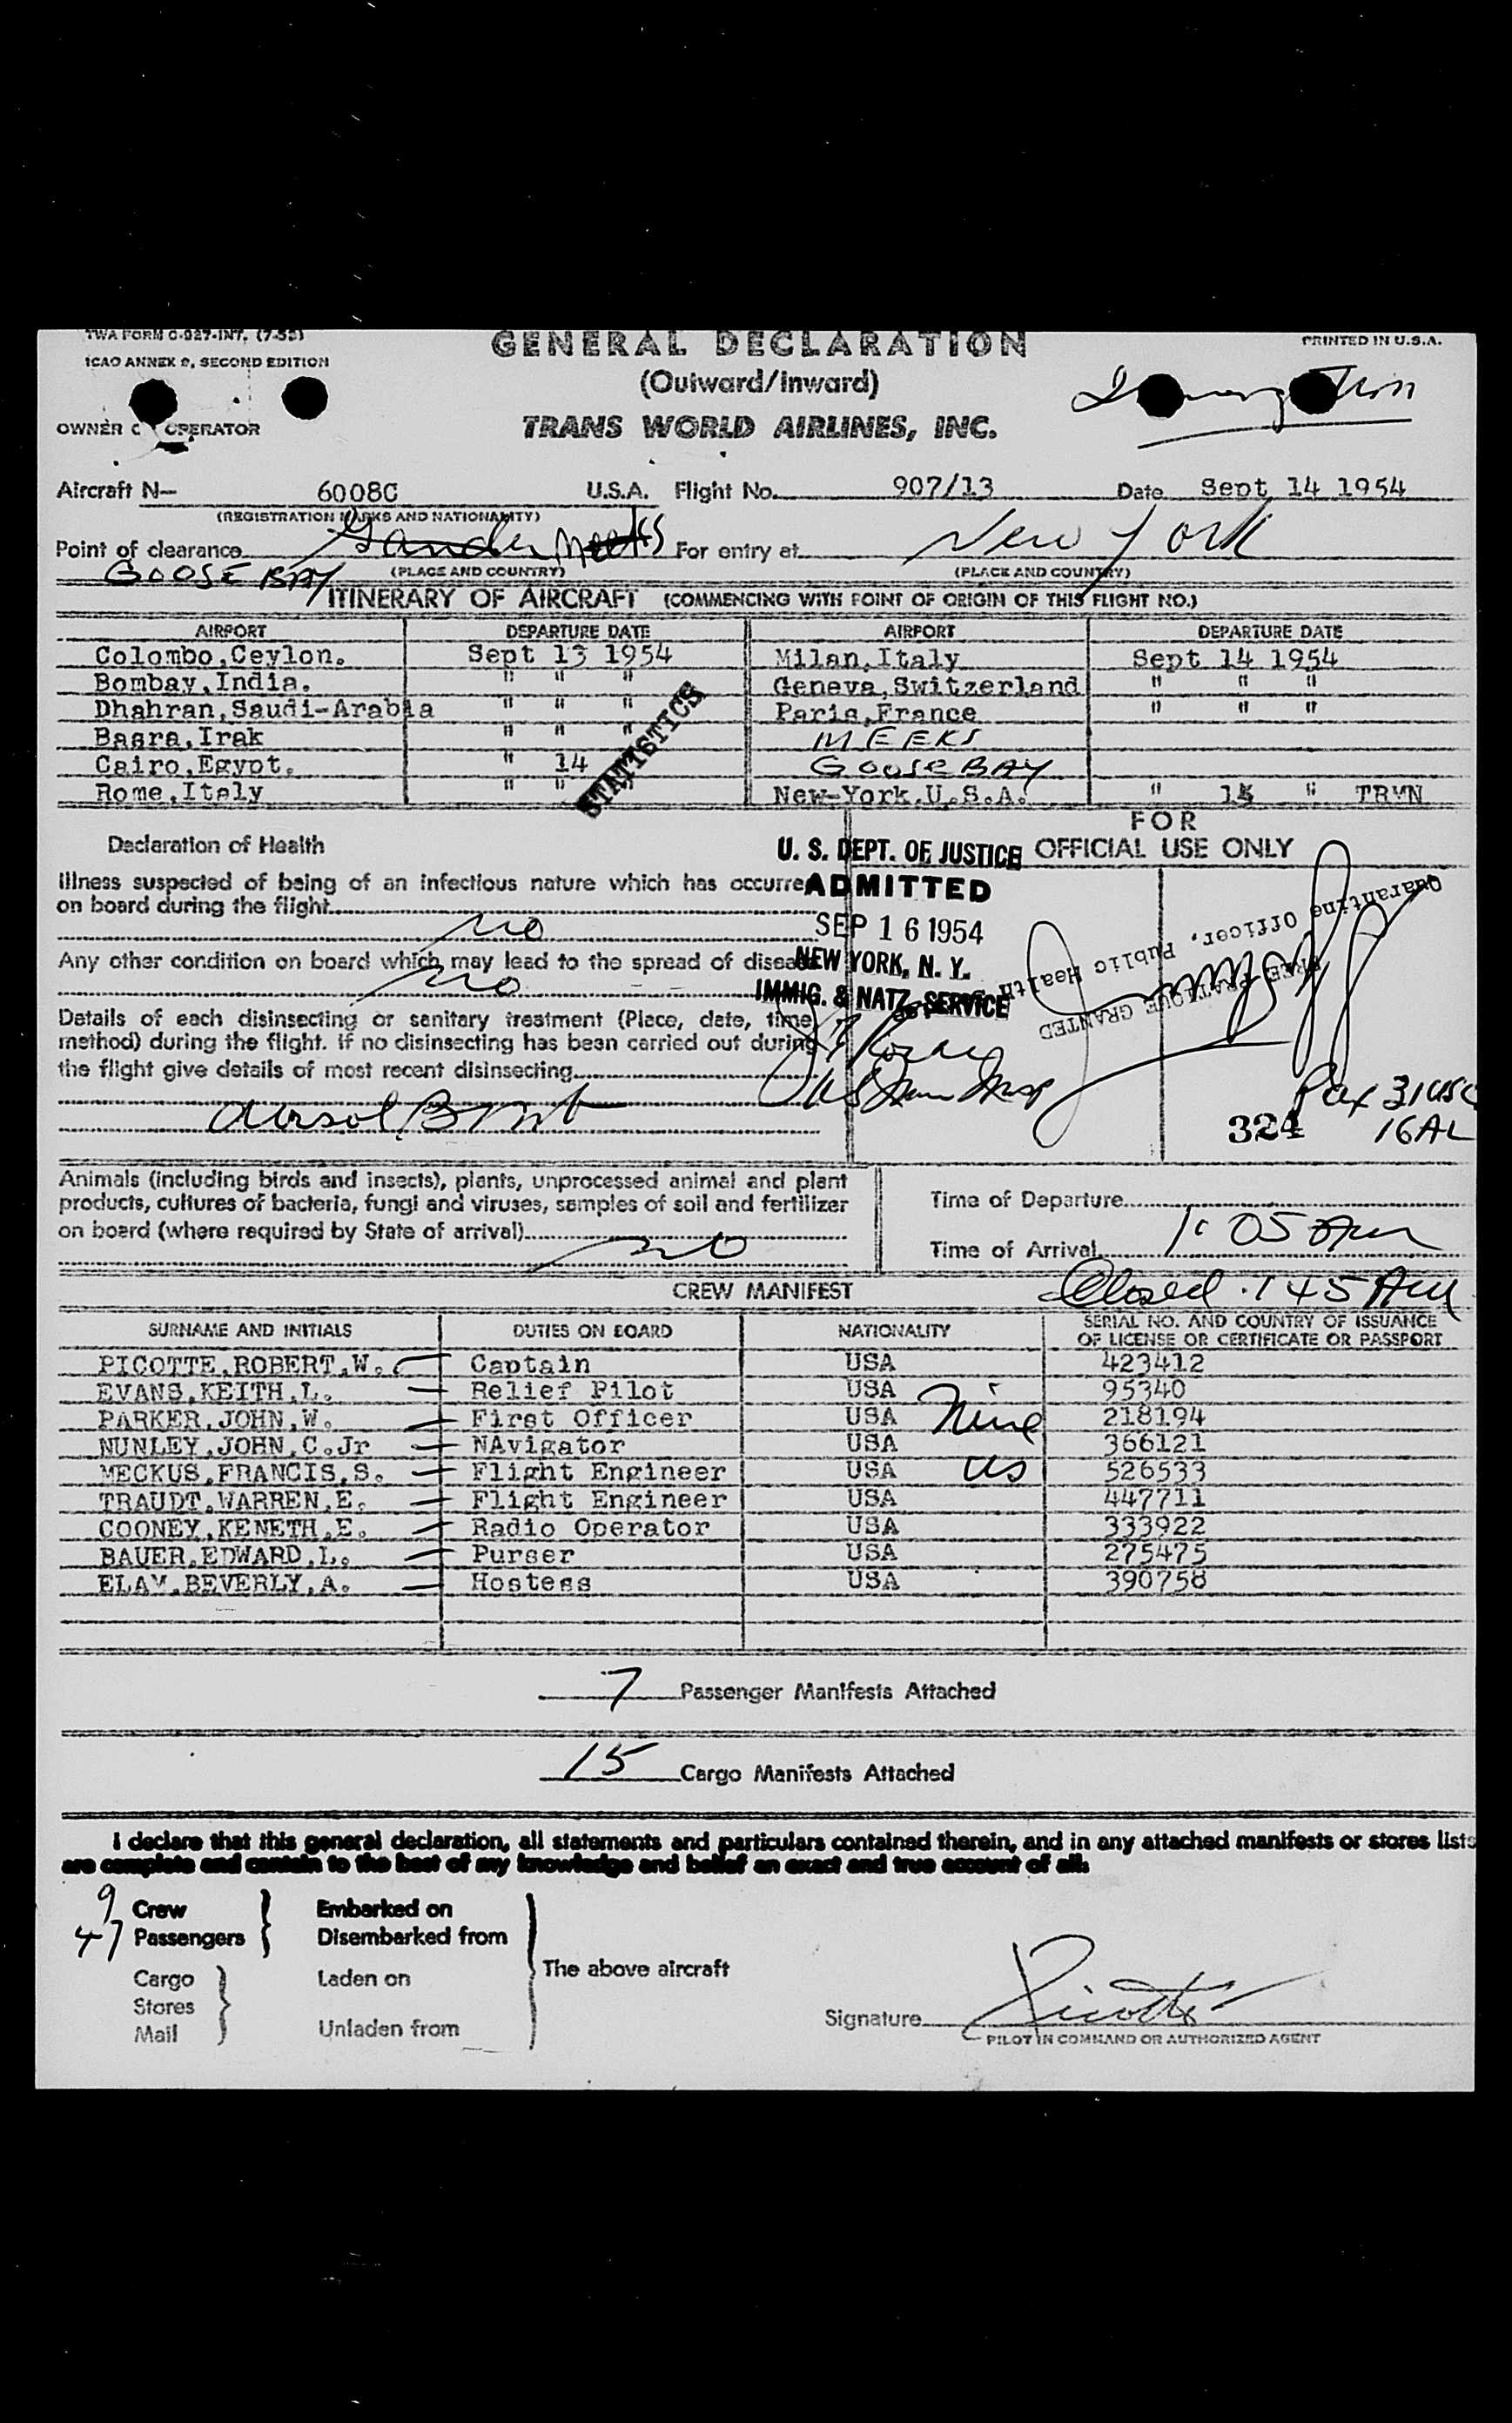 TWA FORM C-927-INT. (7-52)
ICAO ANNEX 9, SECOND EDITION
GENERAL DECLARATION
(Outward/Inward)
TRANS WORLD AIRLINES, INC.
PRINTED IN U.S.A.
OWNER O OPERATOR
Aircraft N— 6008C U.S.A. Flight No. 907/13 Date Sept 14 1954
(REGISTRATION MARKS AND NATIONALITY)
Point of clearance Gander Meeks For entry at New York
GOOSE BAY (PLACE AND COUNTRY) (PLACE AND COUNTRY)
ITINERARY OF AIRCRAFT (COMMENCING WITH POINT OF ORIGIN OF THIS FLIGHT NO.)
AIRPORT DEPARTURE DATE AIRPORT DEPARTURE DATE
Colombo,Ceylon. Sept 13 1954 Milan,Italy Sept 14 1954
Bombay,India. " " " Geneva,Switzerland " " "
Dhahran,Saudi-Arabia " " " Paris,France " " "
Basra,Irak " " " MEEKS
Cairo,Egypt. " 14 GOOSE BAY
Rome,Italy " " New-York.U.S.A. " 15 " TRMN
STATISTICS
Declaration of Health
FOR
OFFICIAL USE ONLY
U. S. DEPT. OF JUSTICE
ADMITTED
SEP 16 1954
NEW YORK, N. Y.
IMMIG. & NATZ. SERVICE
Quarantine Officer, Public Health
FREE PRATIQUE GRANTED
Illness suspected of being of an infectious nature which has occurre
on board during the flight
no
Any other condition on board which may lead to the spread of disease
no
Details of each disinsecting or sanitary treatment (Place, date, time,
method) during the flight. If no disinsecting has been carried out during
the flight give details of most recent disinsecting
Aersol Bomb
Pax 31 USC
324 16 AL
Animals (including birds and insects), plants, unprocessed animal and plant
products, cultures of bacteria, fungi and viruses, samples of soil and fertilizer
on board (where required by State of arrival)
no
Time of Departure
Time of Arrival 1:05 Am
Closed 145 AM
CREW MANIFEST
SURNAME AND INITIALS DUTIES ON BOARD NATIONALITY SERIAL NO. AND COUNTRY OF ISSUANCE
OF LICENSE OR CERTIFICATE OR PASSPORT
PICOTTE,ROBERT,W. Captain USA 423412
EVANS,KEITH,L. Relief Pilot USA 95340
PARKER,JOHN,W. First Officer USA Nine 218194
NUNLEY,JOHN,C.Jr NAvigator USA 366121
MECKUS,FRANCIS,S. Flight Engineer USA US 526533
TRAUDT,WARREN,E. Flight Engineer USA 447711
COONEY,KENETH,E. Radio Operator USA 333922
BAUER,EDWARD,L. Purser USA 275475
ELAM,BEVERLY,A. Hostess USA 390758
7 Passenger Manifests Attached
15 Cargo Manifests Attached
I declare that this general declaration, all statements and particulars contained therein, and in any attached manifests or stores lists
are complete and contain to the best of my knowledge and belief an exact and true account of all:
9 Crew Embarked on
47 Passengers Disembarked from
The above aircraft
Cargo Laden on
Stores
Mail Unladen from
Signature Picotte
PILOT IN COMMAND OR AUTHORIZED AGENT